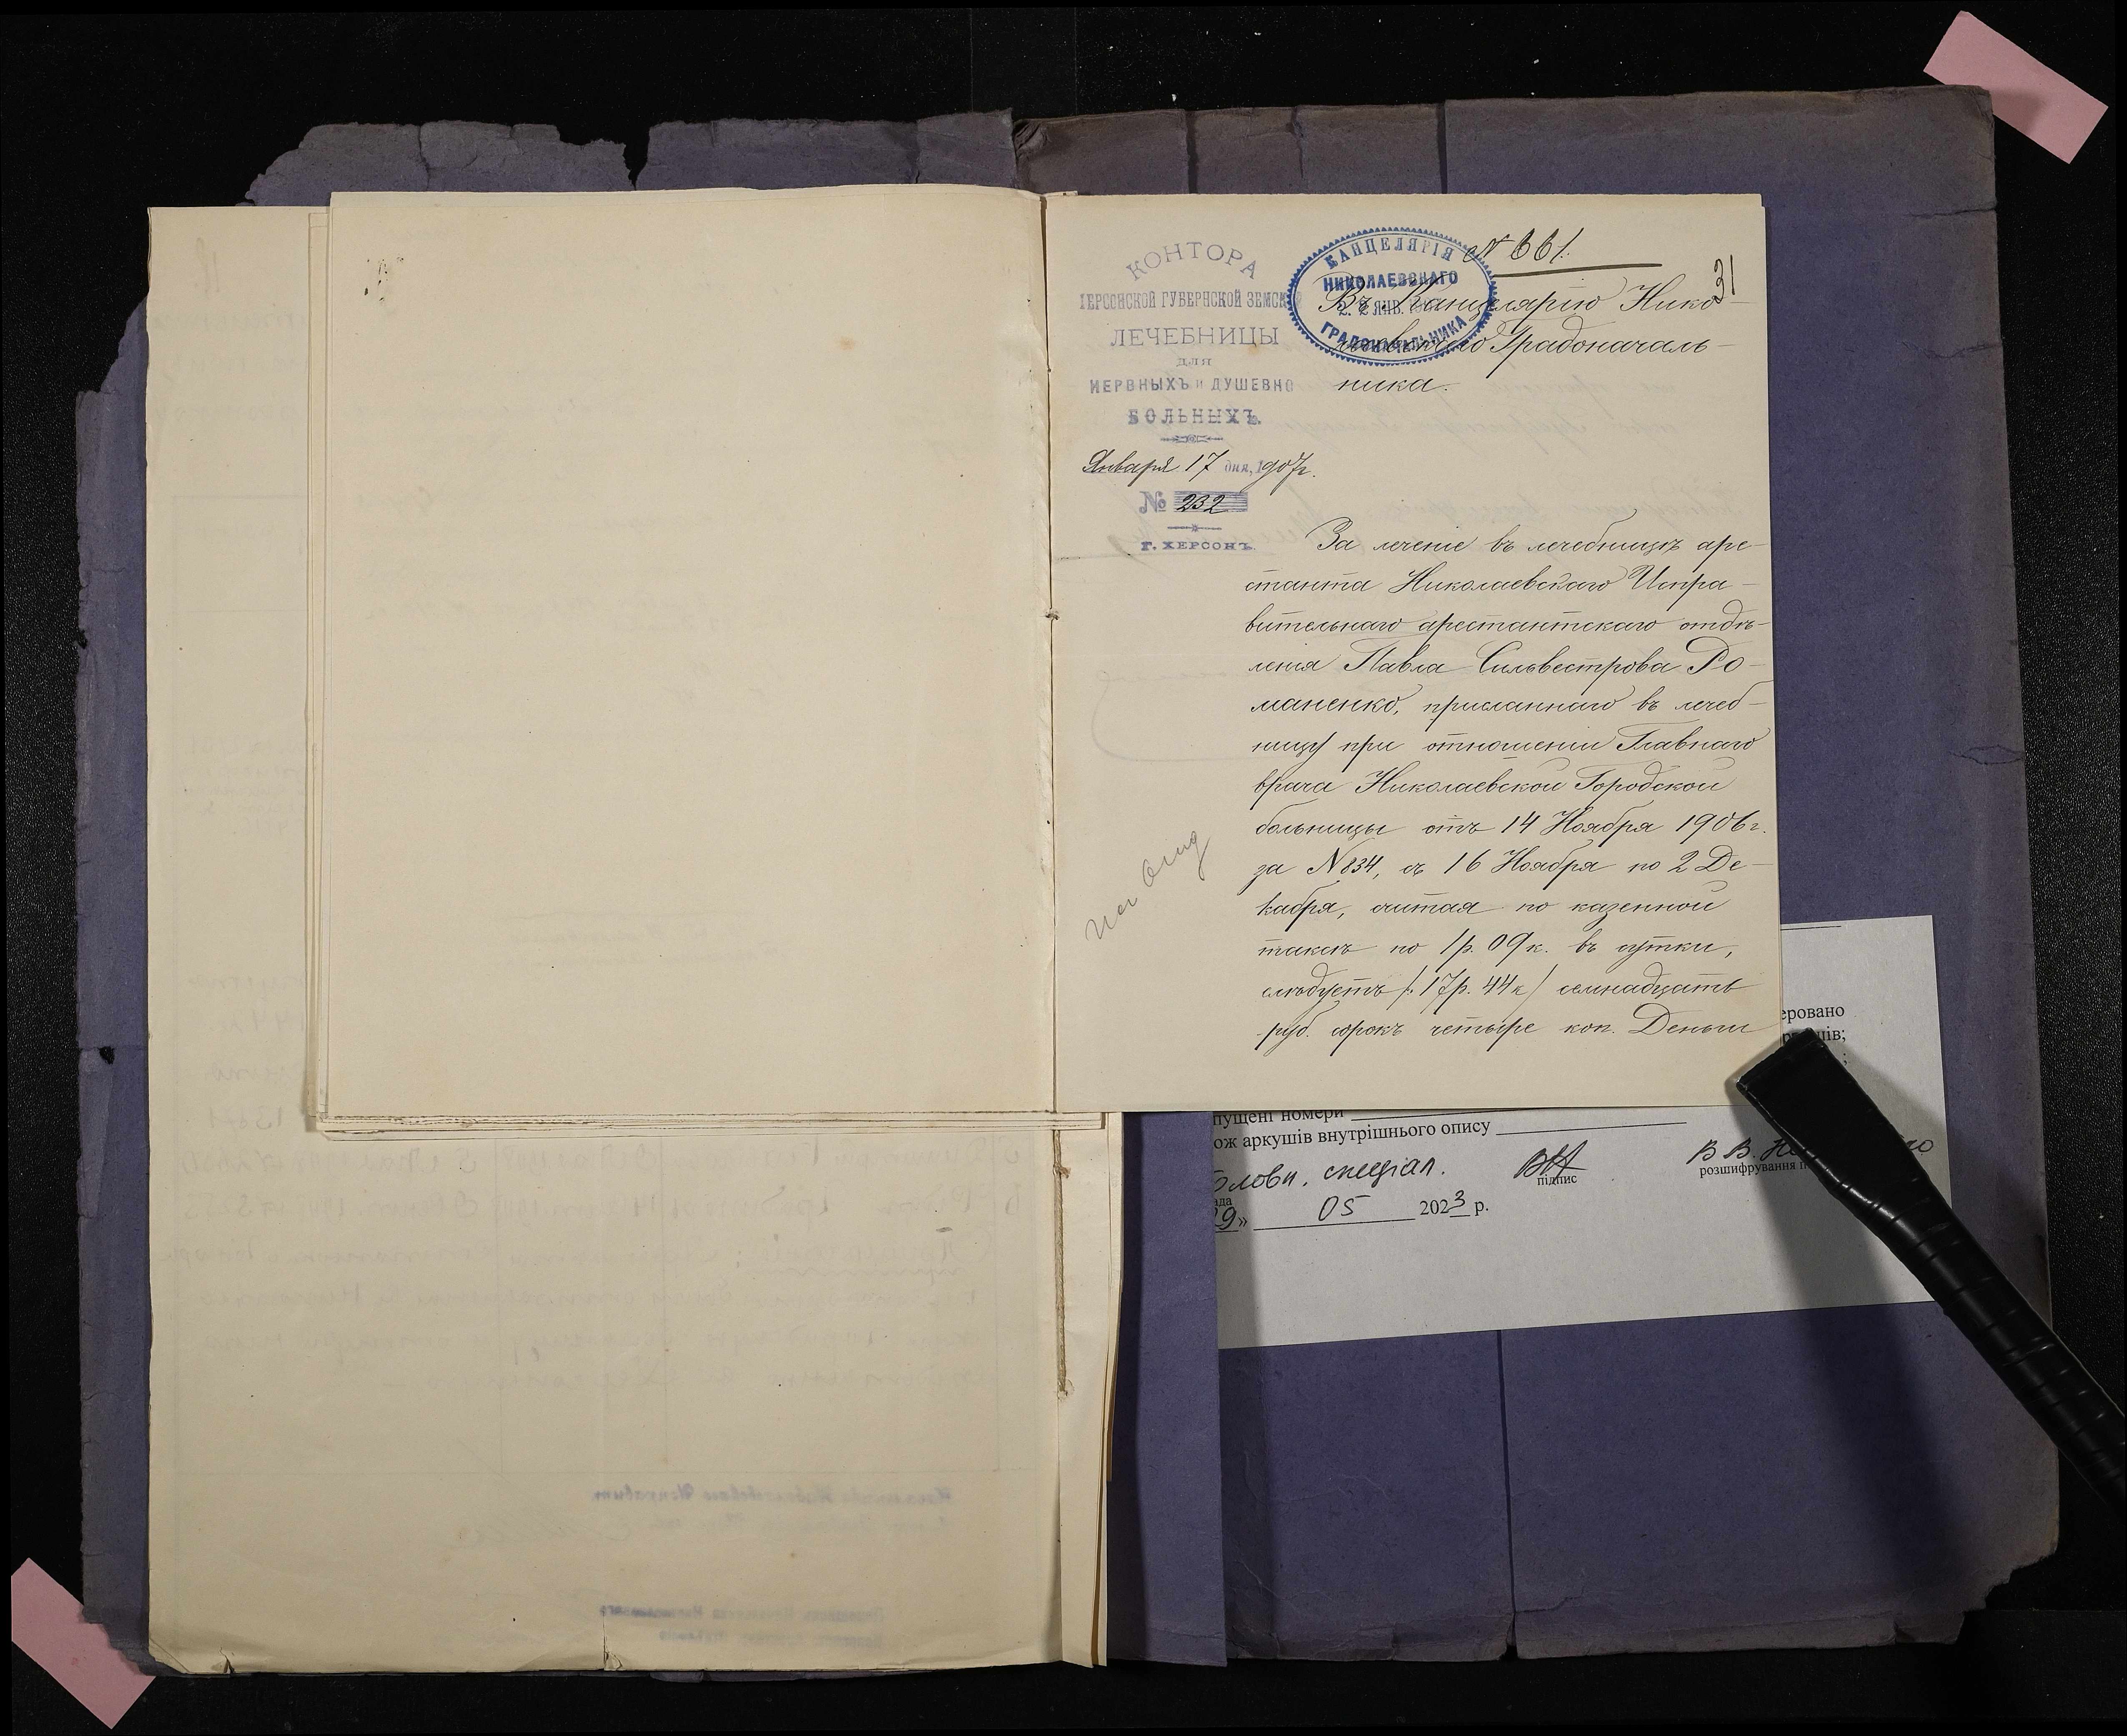 КОНТОРА
ХЕРСОНСКОЙ ГУБЕРНСКОЙ ЗЕМСК
ЛЕЧЕБНИЦЫ
для
НЕРВНЫХЪ и ДУШЕВНО
БОЛЬНЫХЪ.
Января 17 дня, 1907г.
№ 232
Г. ХЕРСОНЪ.
КАНЦЕЛЯРІЯ
НИКОЛАЕВСКАГО
22 ЯНВ.
ГРАДОНАЧАЛЬНИКА
№ 661.
31
Въ Канцелярію Нико-
лаевскаго Градоначаль-
ника.
За леченіе въ лечебницѣ аре-
станта Николаевскаго Испра-
вительнаго арестантскаго отдѣ-
ленія Павла Сильвестрова Ро-
маненко, присланнаго въ лечеб-
ницу при отношеніи Главнаго
врача Николаевской Городской
больницы отъ 14 Ноября 1906 г.
за N 834, съ 16 Ноября по 2 Де-
кабря, считая по казенной
таксѣ по 1р. 09к. въ сутки,
слѣдуетъ /: 17р. 44к/ семнадцать
руб. сорокъ четыре коп. Деньги
еровано
шів;
пущені номери
ож аркушів внутрішнього опису
спеціал.
підпис
В В.
розшифрування п
ада
9» 05 2023 р.